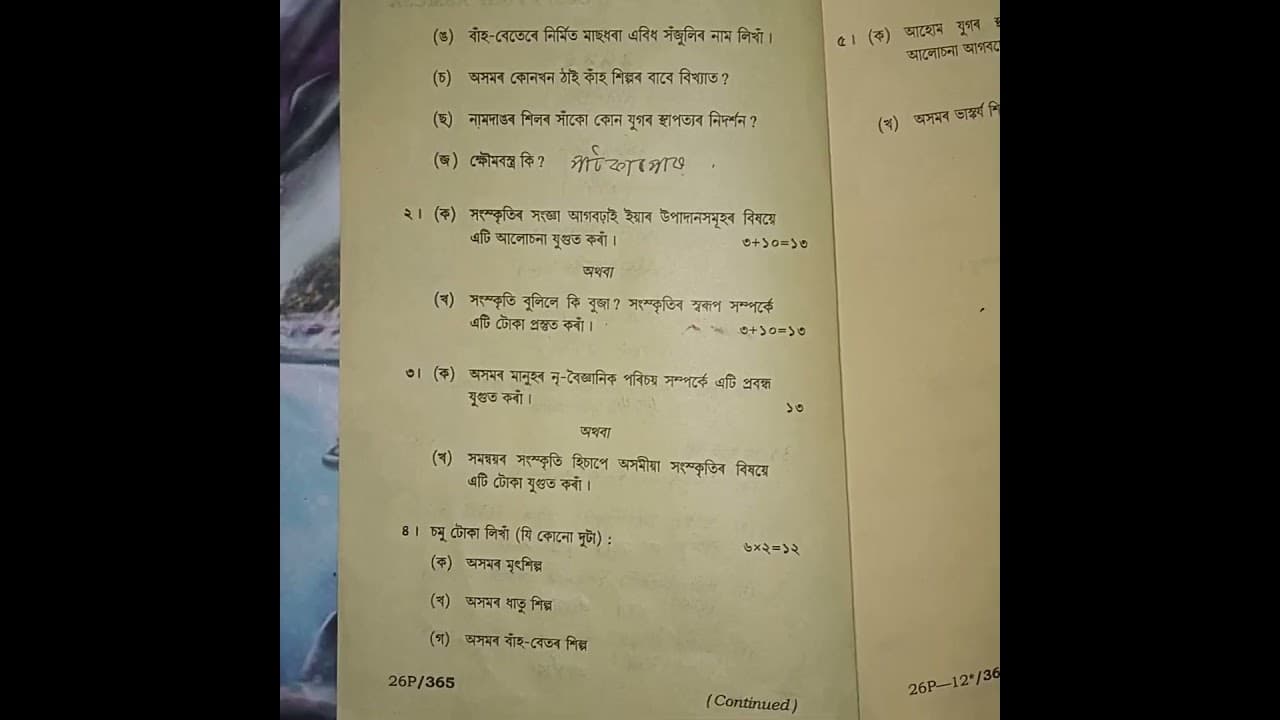 (ঙ) বাঁহ-বেতেৰে নিৰ্মিত মাছধৰা এবিধ সঁজুলিৰ নাম লিখাঁ।
(চ) অসমৰ কোনখন ঠাই কাঁহ শিল্পৰ বাবে বিখ্যাত?
(ছ) নামদাঙৰ শিলৰ সাঁকো কোন যুগৰ স্থাপত্যৰ নিদৰ্শন?
(জ) ক্ষৌমবস্ত্ৰ কি?
২। (ক) সংস্কৃতিৰ সংজ্ঞা আগবঢ়াই ইয়াৰ উপাদানসমূহৰ বিষয়ে
এটি আলোচনা যুগুত কৰাঁ। ৩+১০=১৩
অথবা
(খ) সংস্কৃতি বুলিলে কি বুজা? সংস্কৃতিৰ স্বৰূপ সম্পৰ্কে
এটি টোকা প্ৰস্তুত কৰাঁ। ৩+১০=১৩
৩। (ক) অসমৰ মানুহৰ নৃ-বৈজ্ঞানিক পৰিচয় সম্পৰ্কে এটি প্ৰবন্ধ
যুগুত কৰাঁ। ১৩
অথবা
(খ) সমন্বয়ৰ সংস্কৃতি হিচাপে অসমীয়া সংস্কৃতিৰ বিষয়ে
এটি টোকা যুগুত কৰাঁ।
৪। চমু টোকা লিখাঁ (যি কোনো দুটা) : ৬×২=১২
(ক) অসমৰ মৃৎশিল্প
(খ) অসমৰ ধাতু শিল্প
(গ) অসমৰ বাঁহ-বেতৰ শিল্প
26P/365
(Continued)
৫। (ক) আহোম যুগৰ
আলোচনা
(খ) অসমৰ ভাস্কৰ্য
26P—12*/36